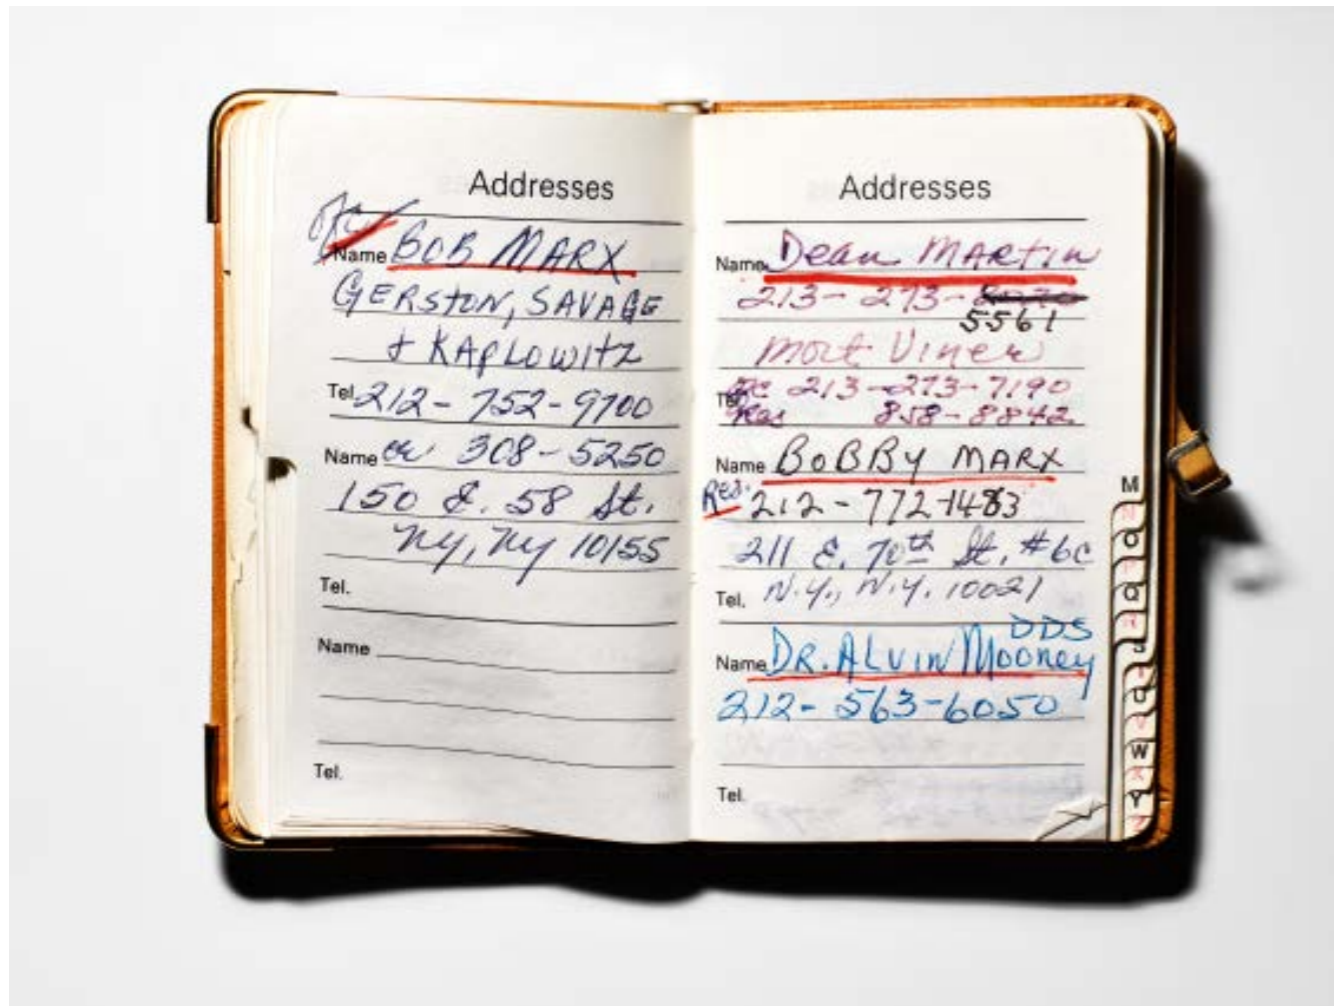 Addresses
Ofc
Name BOB MARX
GERSTON, SAVAGE
+ KAPLOWITZ
Tel. 212-752-9700
Name or 308-5250
150 E. 58 St.
NY, NY 10155
Tel.
Name
Tel.
Addresses
Name Dean MARTIN
213-273-
5561
Mort Viner
Tel. Ofc 213-273-7190
Res 858-8842
Name BOBBY MARX
Res. 212-772-1483
211 E. 70th St. #6C
Tel. N.Y., N.Y. 10021
DDS
Name DR. ALVIN MOONEY
212-563-6050
Tel.
M
W
Y